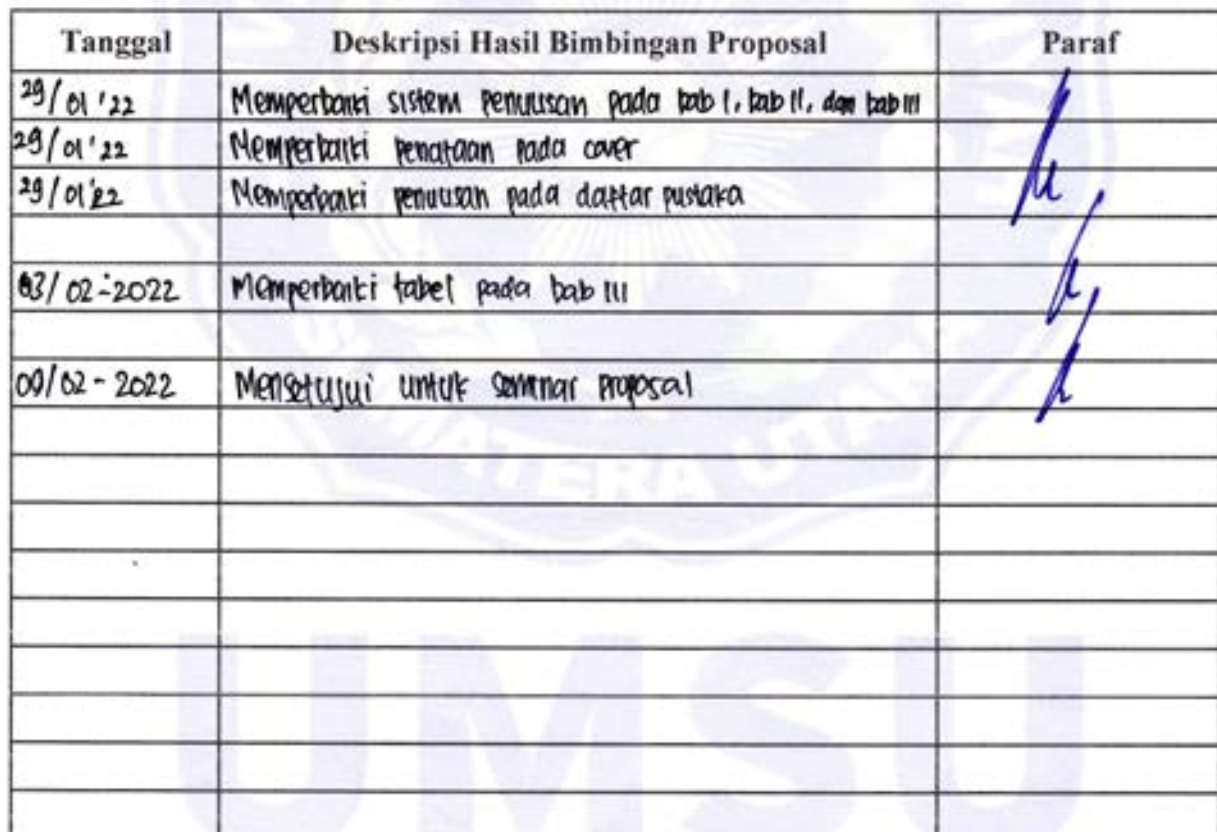 Tanggal Deskripsi Hasil Bimbingan Proposal Paraf
29/01 '22 Memperbaiki sistem penulisan pada bab I, bab II, dan bab III
29/01 '22 Memperbaiki penataan pada cover
29/01 '22 Memperbaiki penulisan pada daftar pustaka
03/02-2022 Memperbaiki tabel pada bab III
09/02-2022 Mensetujui untuk seminar proposal
SUMATERA UTARA
UMSU